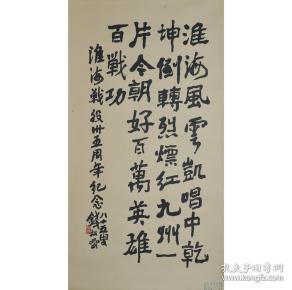 淮海風雲凱唱中乾
坤倒轉烈熛紅九州一
片今朝好百萬英雄
百戰功
淮海戰役卅五周年纪念
八十五叟
錢松喦
孔夫子旧书网